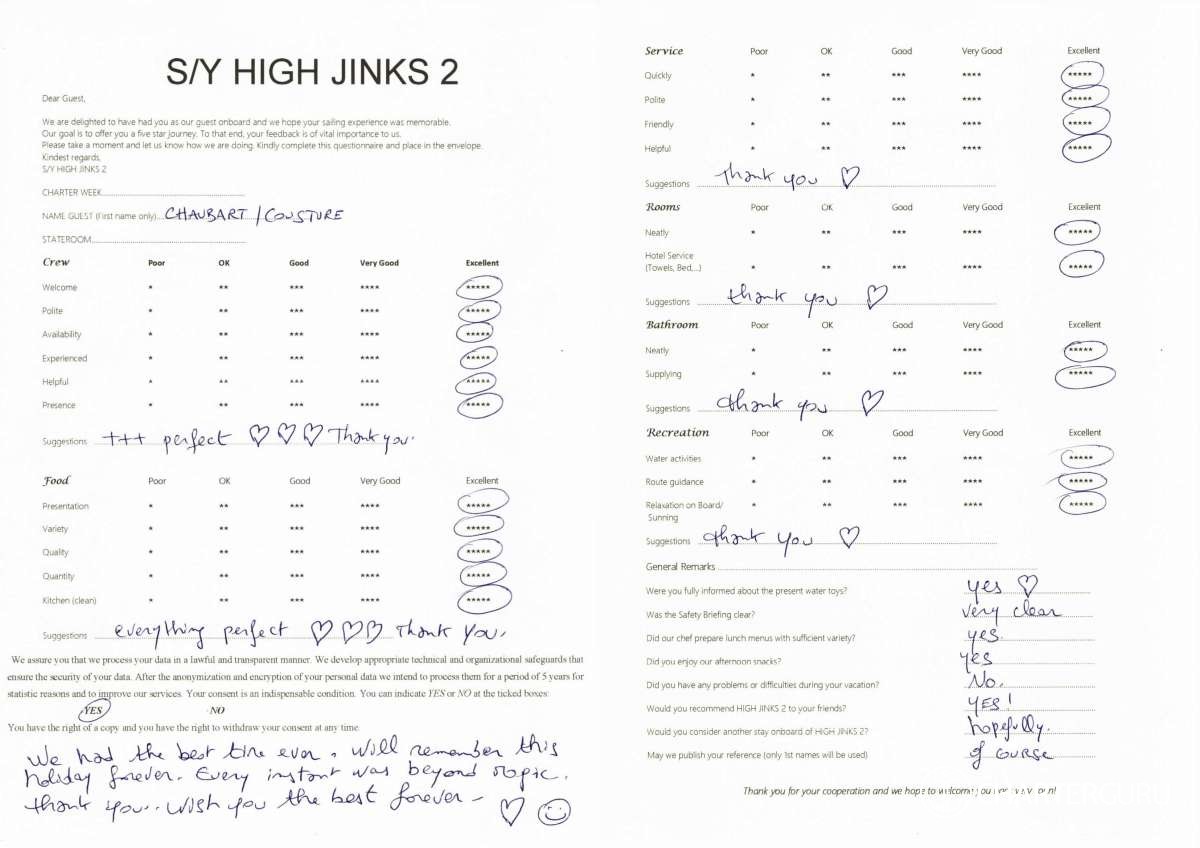 S/Y HIGH JINKS 2
Dear Guest,
We are delighted to have had you as our guest onboard and we hope your sailing experience was memorable.
Our goal is to offer you a five star journey. To that end, your feedback is of vital importance to us.
Please take a moment and let us know how we are doing. Kindly complete this questionnaire and place in the envelope.
Kindest regards,
S/Y HIGH JINKS 2
CHARTER WEEK
NAME GUEST (First name only) CHAUBART / COUSTURE
STATEROOM
Crew Poor OK Good Very Good Excellent
Welcome * ** *** **** *****
Polite * ** *** **** *****
Availability * ** *** **** *****
Experienced * ** *** **** *****
Helpful * ** *** **** *****
Presence * ** *** **** *****
Suggestions +++ perfect ♡ ♡ ♡ Thank you.
Food Poor OK Good Very Good Excellent
Presentation * ** *** **** *****
Variety * ** *** **** *****
Quality * ** *** **** *****
Quantity * ** *** **** *****
Kitchen (clean) * ** *** **** *****
Suggestions everything perfect ♡♡♡ Thank you.
We assure you that we process your data in a lawful and transparent manner. We develop appropriate technical and organizational safeguards that
ensure the security of your data. After the anonymization and encryption of your personal data we intend to process them for a period of 5 years for
statistic reasons and to improve our services. Your consent is an indispensable condition. You can indicate YES or NO at the ticked boxes:
YES NO
You have the right of a copy and you have the right to withdraw your consent at any time.
We had the best time ever. Will remember this
holiday forever. Every instant was beyond magic.
thank you.. Wish you the best forever - ♡ ☺
Service Poor OK Good Very Good Excellent
Quickly * ** *** **** *****
Polite * ** *** **** *****
Friendly * ** *** **** *****
Helpful * ** *** **** *****
Suggestions thank you ♡
Rooms Poor OK Good Very Good Excellent
Neatly * ** *** **** *****
Hotel Service
(Towels, Bed,...) * ** *** **** *****
Suggestions thank you ♡
Bathroom Poor OK Good Very Good Excellent
Neatly * ** *** **** *****
Supplying * ** *** **** *****
Suggestions thank you ♡
Recreation Poor OK Good Very Good Excellent
Water activities * ** *** **** *****
Route guidance * ** *** **** *****
Relaxation on Board/ * ** *** **** *****
Sunning
Suggestions thank you ♡
General Remarks
Were you fully informed about the present water toys? yes ♡
Was the Safety Briefing clear? very clear
Did our chef prepare lunch menus with sufficient variety? yes.
Did you enjoy our afternoon snacks? yes
Did you have any problems or difficulties during your vacation? No.
Would you recommend HIGH JINKS 2 to your friends? YES!
Would you consider another stay onboard of HIGH JINKS 2? hopefully.
May we publish your reference (only 1st names will be used) of course
Thank you for your cooperation and we hope to welcome you